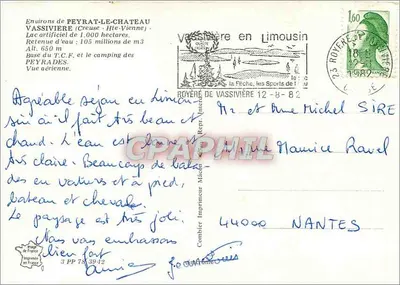 Environs de PEYRAT-LE-CHATEAU
VASSIVIERE (Creuse - Hte-Vienne) -
Lac artificiel de 1.000 hectares.
Retenue d'eau : 105 millions de m3
Alt. 650 m
Base du T.C.F. et le camping des
PEYRADES.
Vue aérienne.
Vassivière en Limousin
la Pêche, les Sports de
ROYERE DE VASSIVIÈRE 12-8-8
23 ROYERE
12-8
1982
1,60
Agréable séjour en Limou-
sin où il fait très beau et
chaud. L'eau est bonne et
très claire. Beaucoup de bala-
des en voitures et à pied,
bateau et cheval.
Le paysage est très joli.
Nous vous embrassons
bien fort
Annie Jean Louis
Mr et Mme Michel SIRE
rue Maurice Ravel
44000 NANTES
Combier Imprimeur Mâcon
Image de France
Imprimée en France
3 PP 78 3942
CPAPHIL.COM